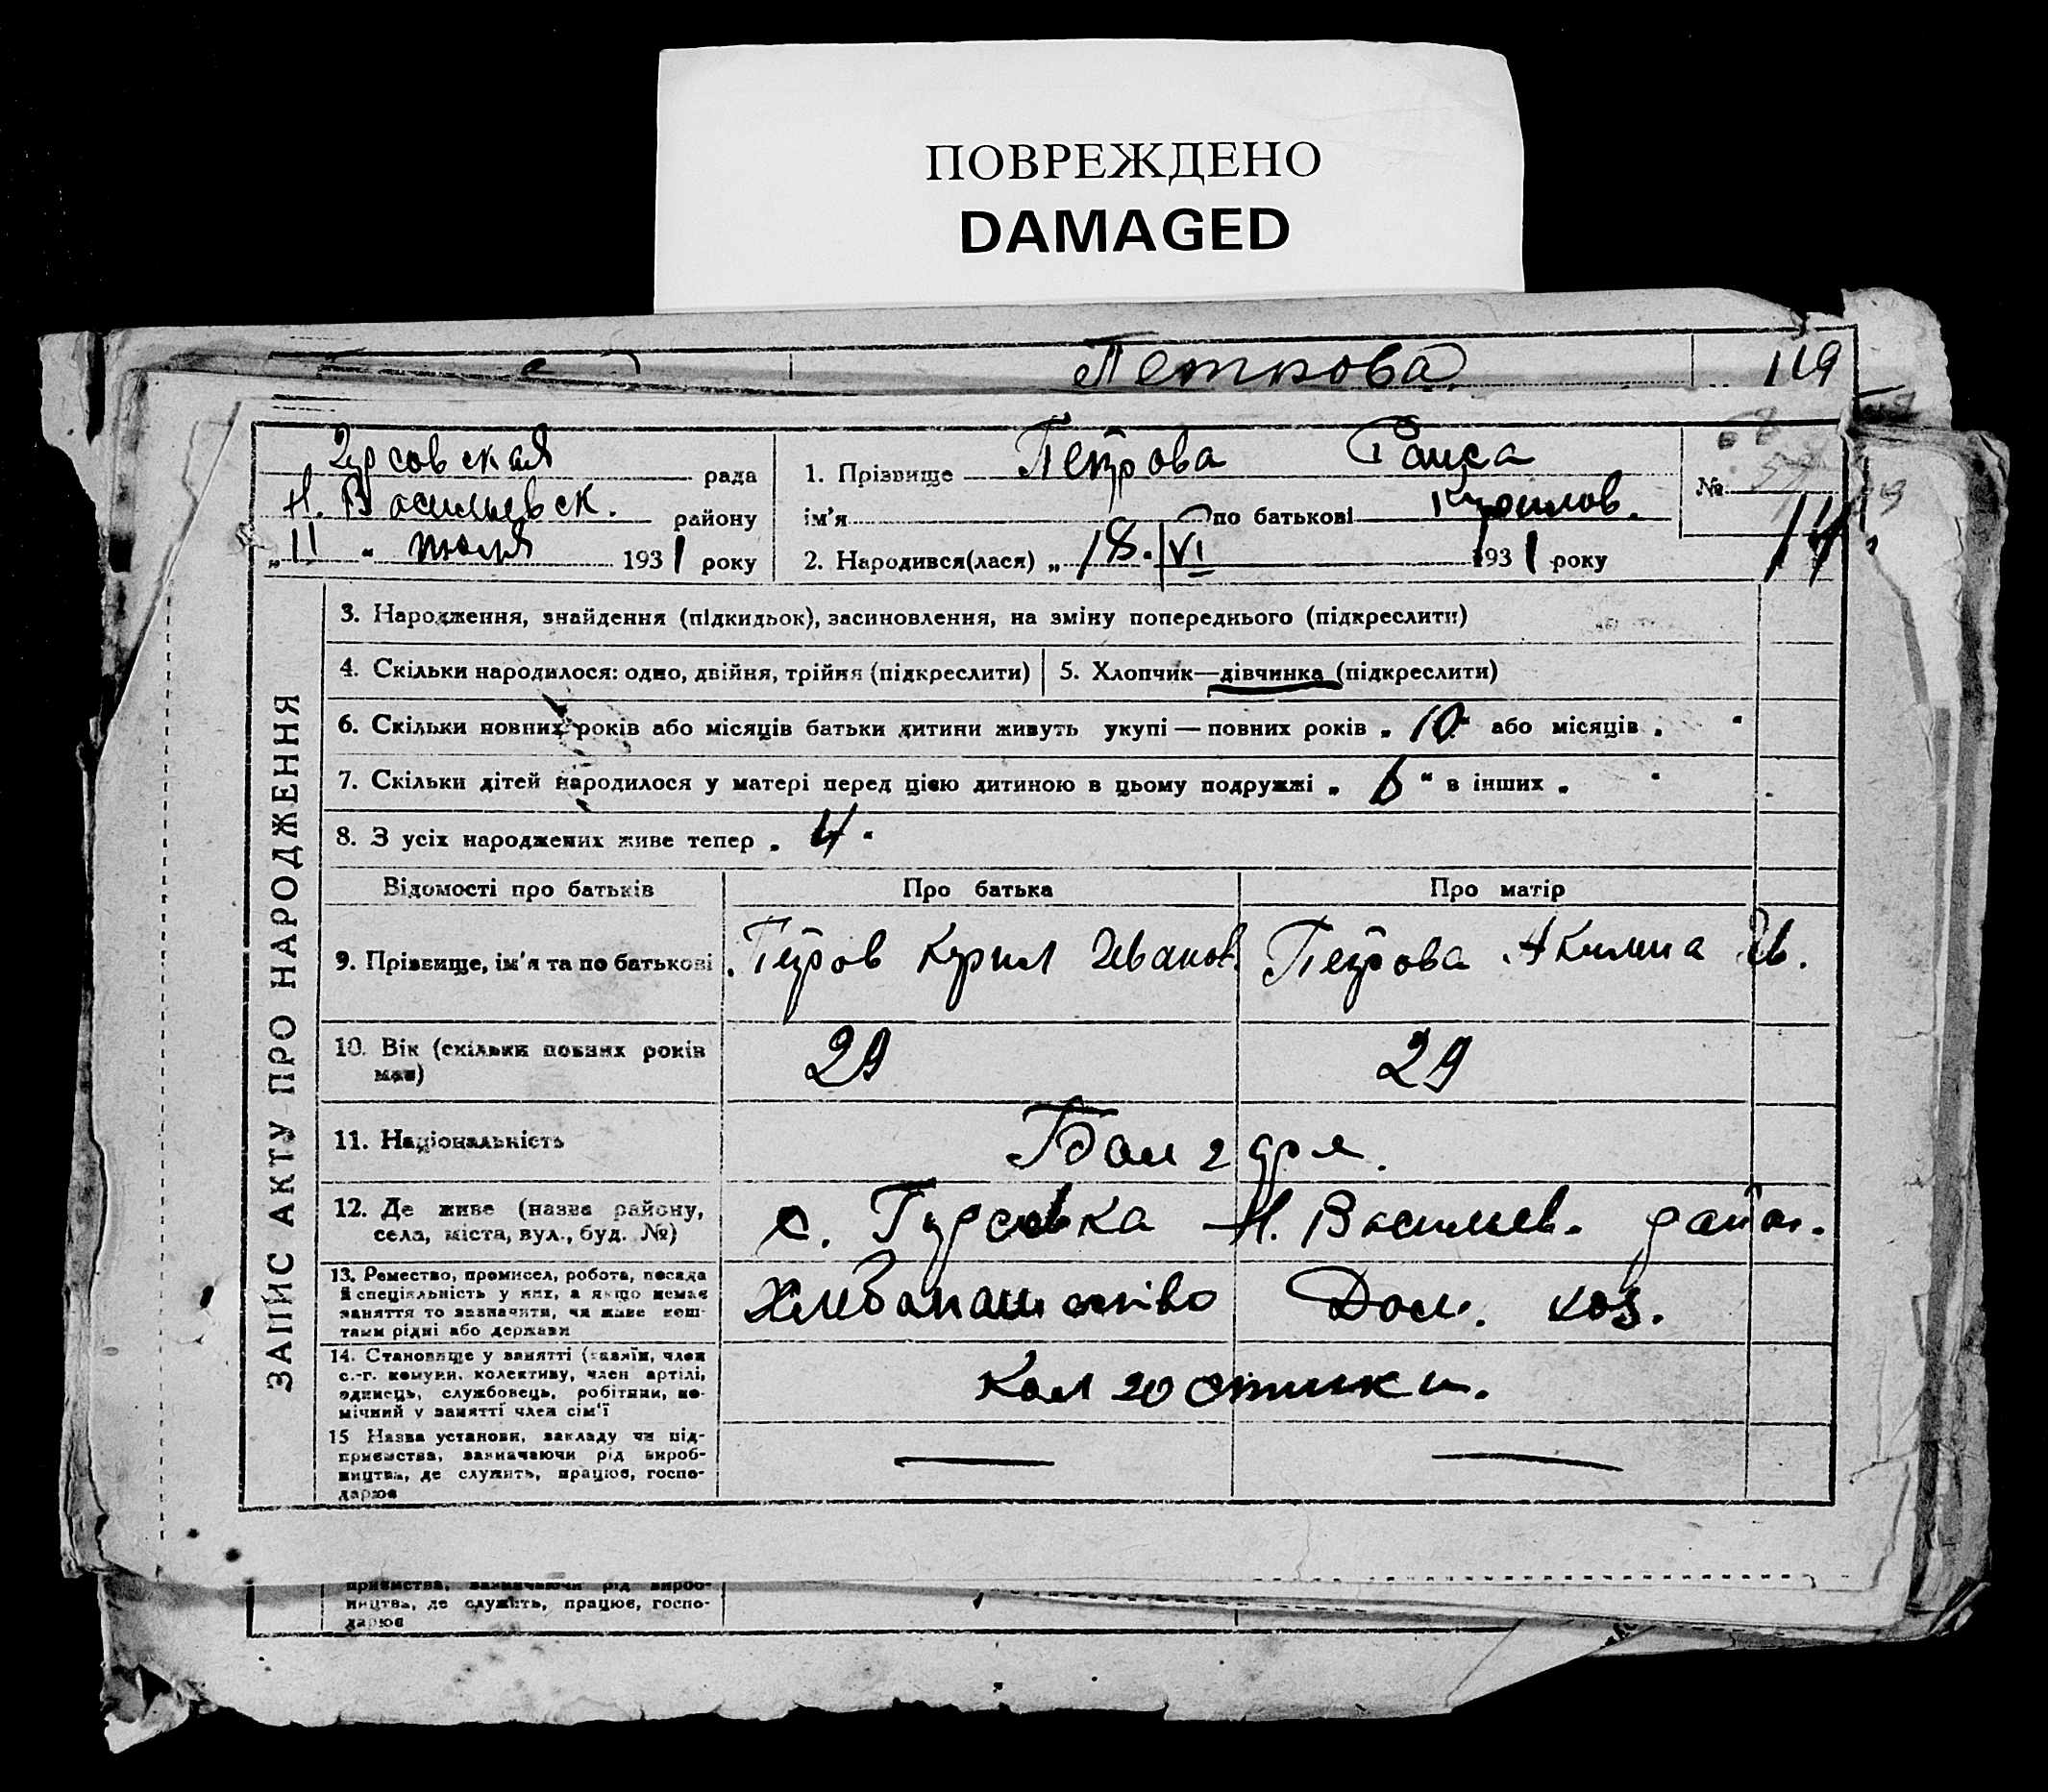 ПОВРЕЖДЕНО
DAMAGED
119
Гурсовская рада
Н. Васильевск. району
„ 11 “ июля 1931 року
1. Прізвище Петрова Раиса
ім’я по батькові Курилов.
2. Народився(лася) „ 18. VI 1931 року
№ 14
ЗАПИС АКТУ ПРО НАРОДЖЕННЯ
3. Народження, знайдення (підкидьок), засиновлення, на зміну попереднього (підкреслити)
4. Скільки народилося: одно, двійня, трійня (підкреслити)
5. Хлопчик—дівчинка (підкреслити)
6. Скільки повних років або місяців батьки дитини живуть укупі — повних років „ 10 “ або місяців „ “
7. Скільки дітей народилося у матері перед цією дитиною в цьому подружжі „ 6 “ в інших „ “
8. З усіх народжених живе тепер „ 4 “
Відомості про батьків
Про батька
Про матір
9. Прізвище, ім’я та по батькові
Петров Курил Иванов.
Петрова Акилина Ив.
10. Вік (скільки повних років
має)
29
29
11. Національність
Болгаре.
12. Де живе (назва району,
села, міста, вул., буд. №)
с. Гурсовка Н. Василев. район.
13. Ремество, промисел, робота, посада
й спеціяльність у них, а якщо немає
заняття то зазначити, чи живе кош-
тами рідні або держави
Хлебопашество
Дом. хоз.
14. Становище у занятті (хазяїн, член
с.-г. комуни, колективу, член артілі,
одинець, службовець, робітник, по-
мічний у занятті член сім’ї
Колгостники.
15 Назва установи, закладу чи під-
приємства, зазначаючи рід вироб-
ництва, де служить, працює, госпо-
дарює
приємства, зазначаючи рід вироб-
ництва, де служить, працює, госпо-
дарює